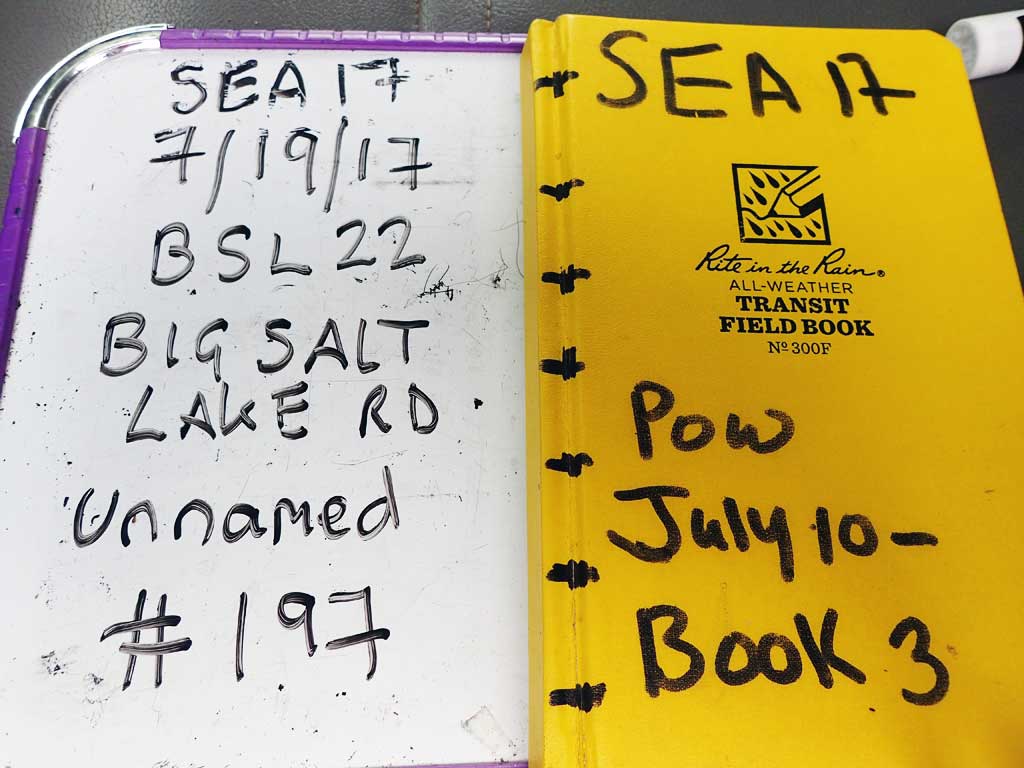 SEA 17
7/19/17
BSL 22
BIG SALT
LAKE RD
Unnamed
# 197
SEA 17
Rite in the Rain®
ALL-WEATHER
TRANSIT
FIELD BOOK
Nº 300F
POW
July 10-
BOOK 3